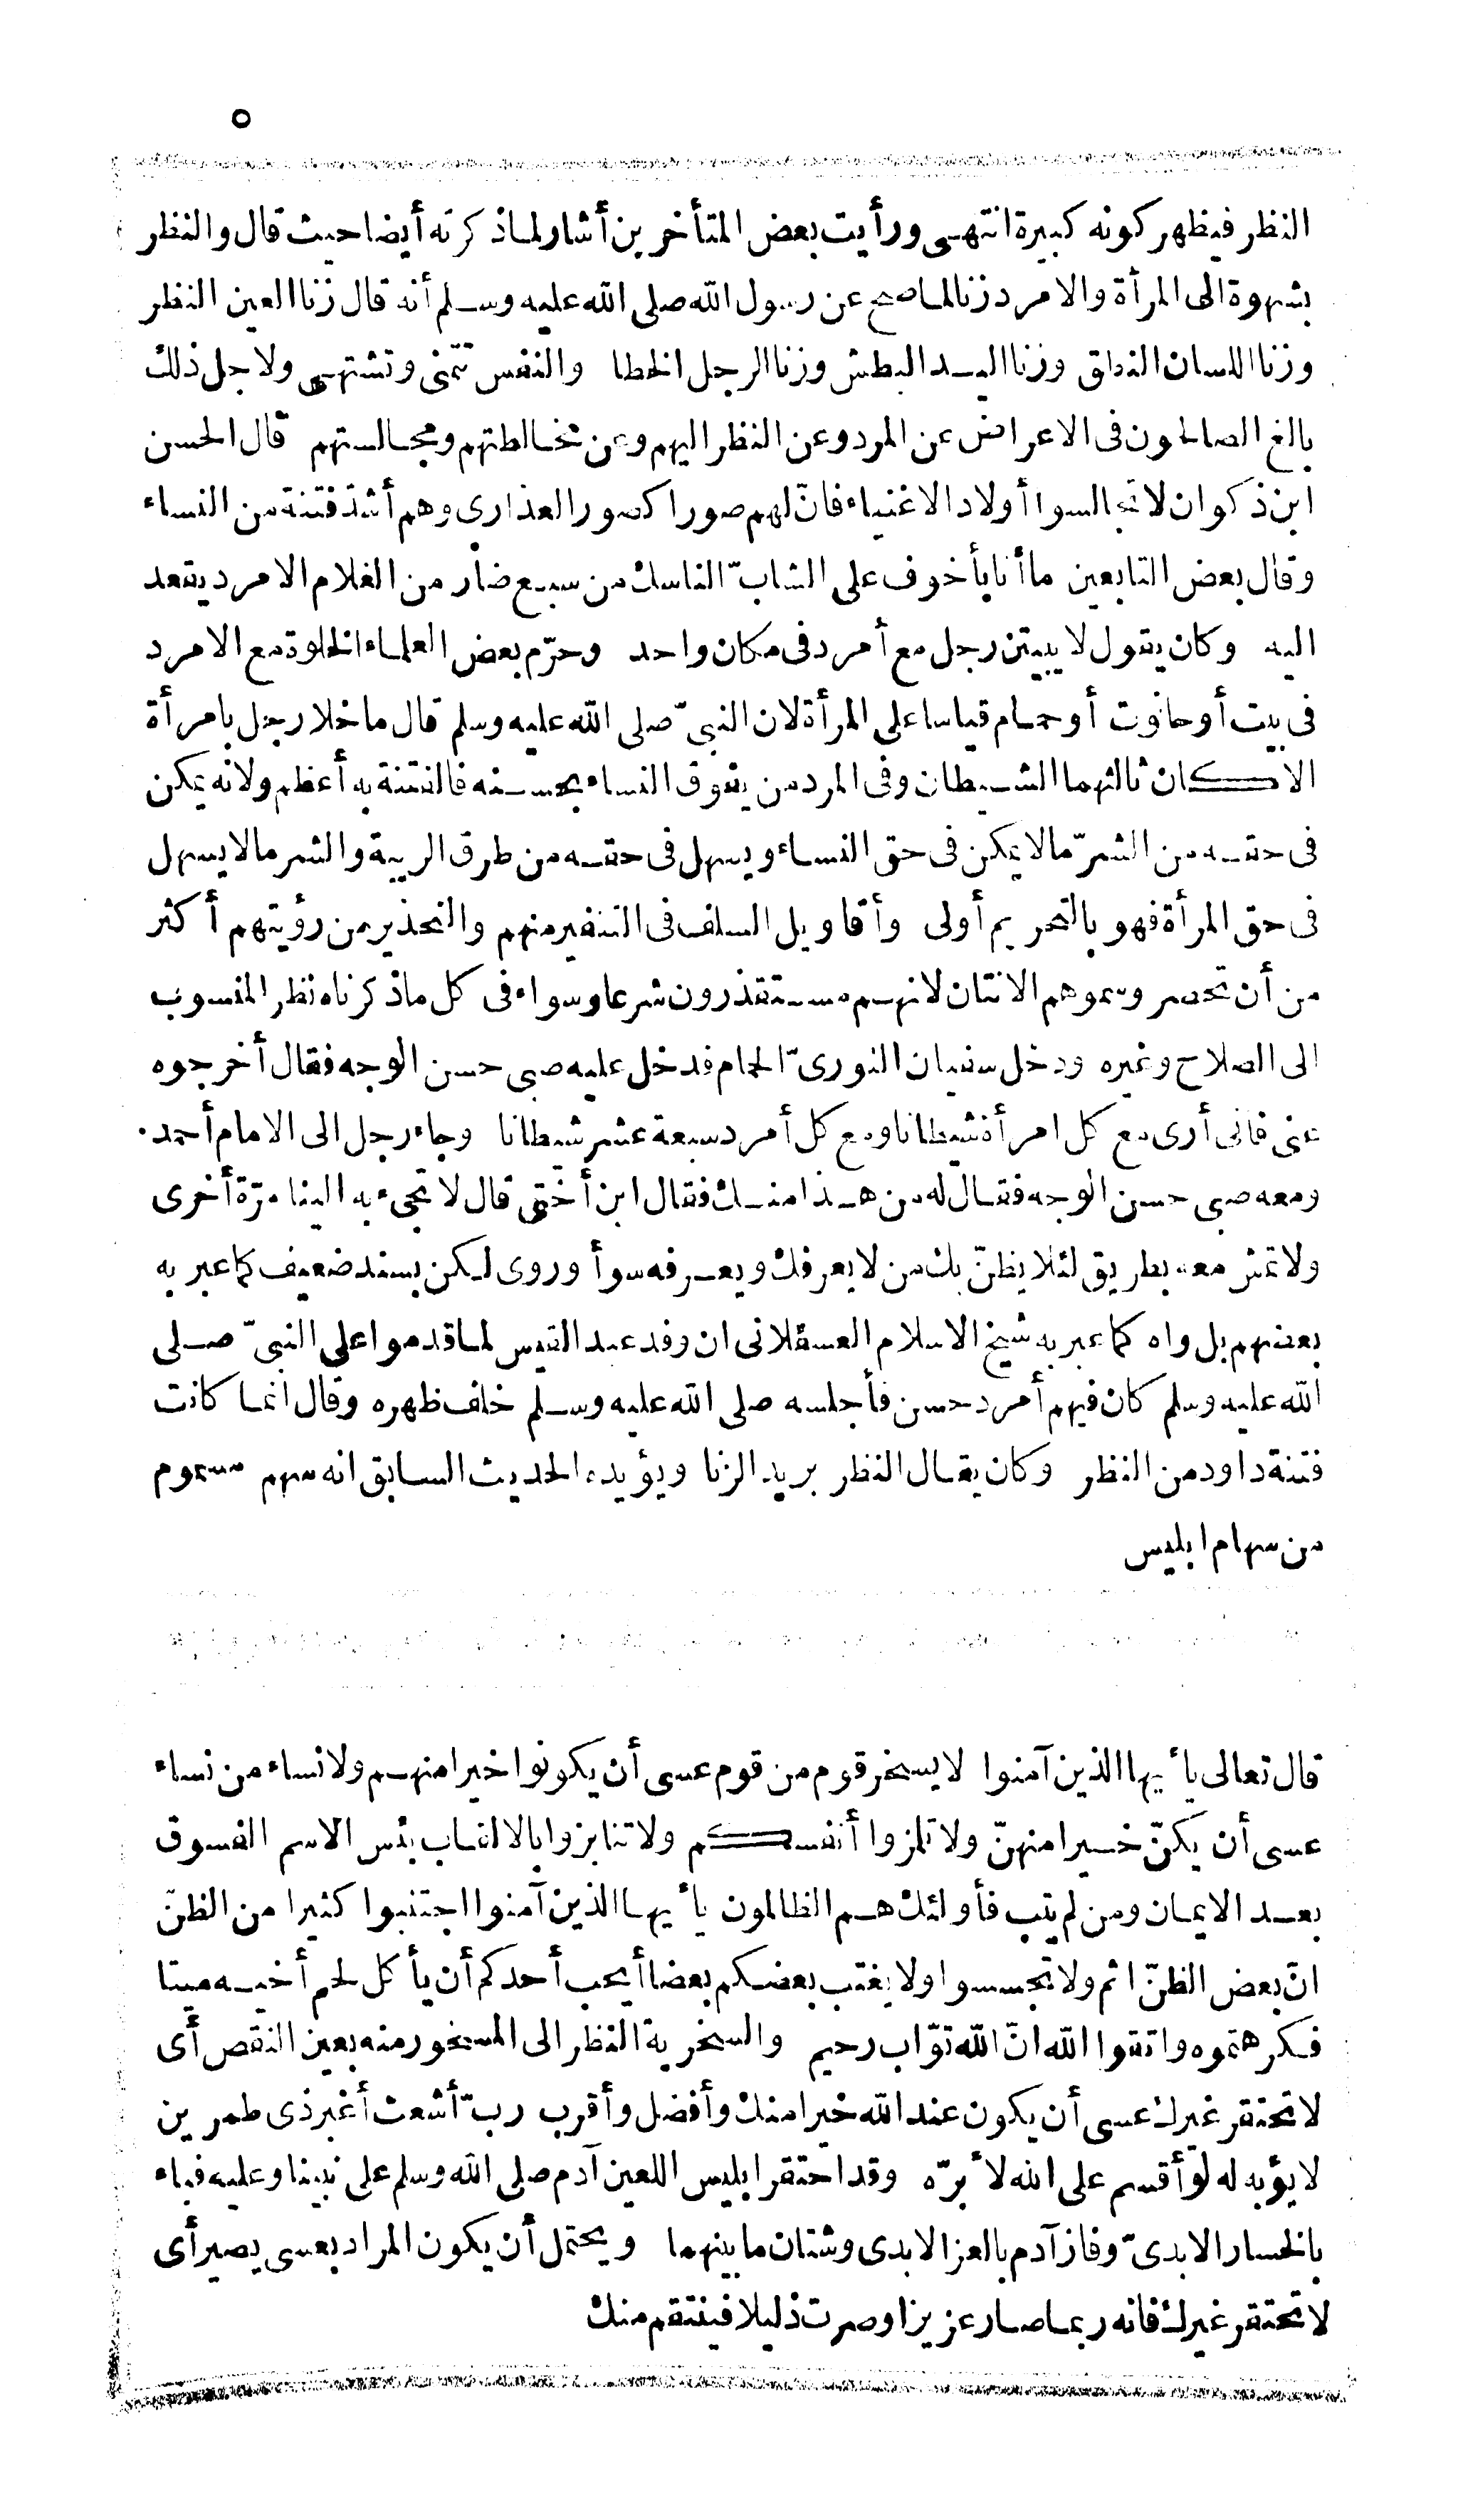 ٥
النظر فيظهر كونه كبيرة انتهى ورأيت بعض المتأخرين أشار لما ذكرته أيضا حيث قال والنظر
بشهوة الى المرأة والامرد زنا لما صح عن رسول الله صلى الله عليه وسلم أنه قال زنا العين النظر
وزنا اللسان النطق وزنا اليد البطش وزنا الرجل الخطا والنفس تتمنى وتشتهى ولاجل ذلك
بالغ الصالحون فى الاعراض عن المرد وعن النظر اليهم وعن مخالطتهم ومجالستهم قال الحسن
ابن ذكوان لا تجالسوا أولاد الاغنياء فانّ لهم صورا كصور العذارى وهم أشدّ فتنة من النساء
وقال بعض التابعين ما أنا بأخوف على الشابّ الناسك من سبع ضار من الغلام الامرد يقعد
اليه وكان يقول لا يبيتن رجل مع أمرد فى مكان واحد وحرّم بعض العلماء الخلوة مع الامرد
فى بيت أو حانوت أو حمام قياسا على المرأة لان النبىّ صلى الله عليه وسلم قال ما خلا رجل بامرأة
الا كان ثالثهما الشيطان وفى المرد من يفوق النساء بحسنه فالفتنة به أعظم ولانه يمكن
فى حقه من الشرّ ما لا يمكن فى حق النساء ويسهل فى حقه من طرق الريبة والشر ما لا يسهل
فى حق المرأة فهو بالتحريم أولى وأقاويل السلف فى التنفير منهم والتحذير من رؤيتهم أكثر
من أن تحصر وسموهم الانتان لانهم مستقذرون شرعا وسواء فى كل ما ذكرناه نظر المنسوب
الى الصلاح وغيره ودخل سفيان الثورىّ الحمام فدخل عليه صبى حسن الوجه فقال أخرجوه
عنى فانى أرى مع كل امرأة شيطانا ومع كل أمرد سبعة عشر شيطانا وجاء رجل الى الامام أحمد
ومعه صبى حسن الوجه فقال له من هذا منك فقال ابن أختى قال لا تجىء به الينا مرّة أخرى
ولا تمش معه بطريق لئلا يظنّ بك من لا يعرفك ويعرفه سوأ وروى لكن بسند ضعيف كما عبر به
بعضهم بل واه كما عبر به شيخ الاسلام العسقلانى ان وفد عبد القيس لما قدموا على النبىّ صلى
الله عليه وسلم كان فيهم أمرد حسن فأجلسه صلى الله عليه وسلم خلف ظهره وقال انما كانت
فتنة داود من النظر وكان يقال النظر بريد الزنا ويؤيده الحديث السابق انه سهم مسموم
من سهام ابليس
قال تعالى يأيها الذين آمنوا لا يسخر قوم من قوم عسى أن يكونوا خيرا منهم ولا نساء من نساء
عسى أن يكنّ خيرا منهنّ ولا تلمزوا أنفسكم ولا تنابزوا بالالقاب بئس الاسم الفسوق
بعد الايمان ومن لم يتب فأولئك هم الظالمون يأيها الذين آمنوا اجتنبوا كثيرا من الظنّ
انّ بعض الظنّ اثم ولا تجسسوا ولا يغتب بعضكم بعضا أيحب أحدكم أن يأكل لحم أخيه ميتا
فكرهتموه واتقوا الله انّ الله توّاب رحيم والسخرية النظر الى المسخور منه بعين النقص أى
لا تحتقر غيرك عسى أن يكون عند الله خيرا منك وأفضل وأقرب ربّ أشعث أغبر ذى طمرين
لا يؤبه له لو أقسم على الله لأبرّه وقد احتقر ابليس اللعين آدم صلى الله وسلم على نبينا وعليه فباء
بالخسار الابدىّ وفاز آدم بالعز الابدى وشتان ما بينهما ويحتمل أن يكون المراد بعسى يصير أى
لا تحتقر غيرك فانه ربما صار عزيزا وصرت ذليلا فينتقم منك